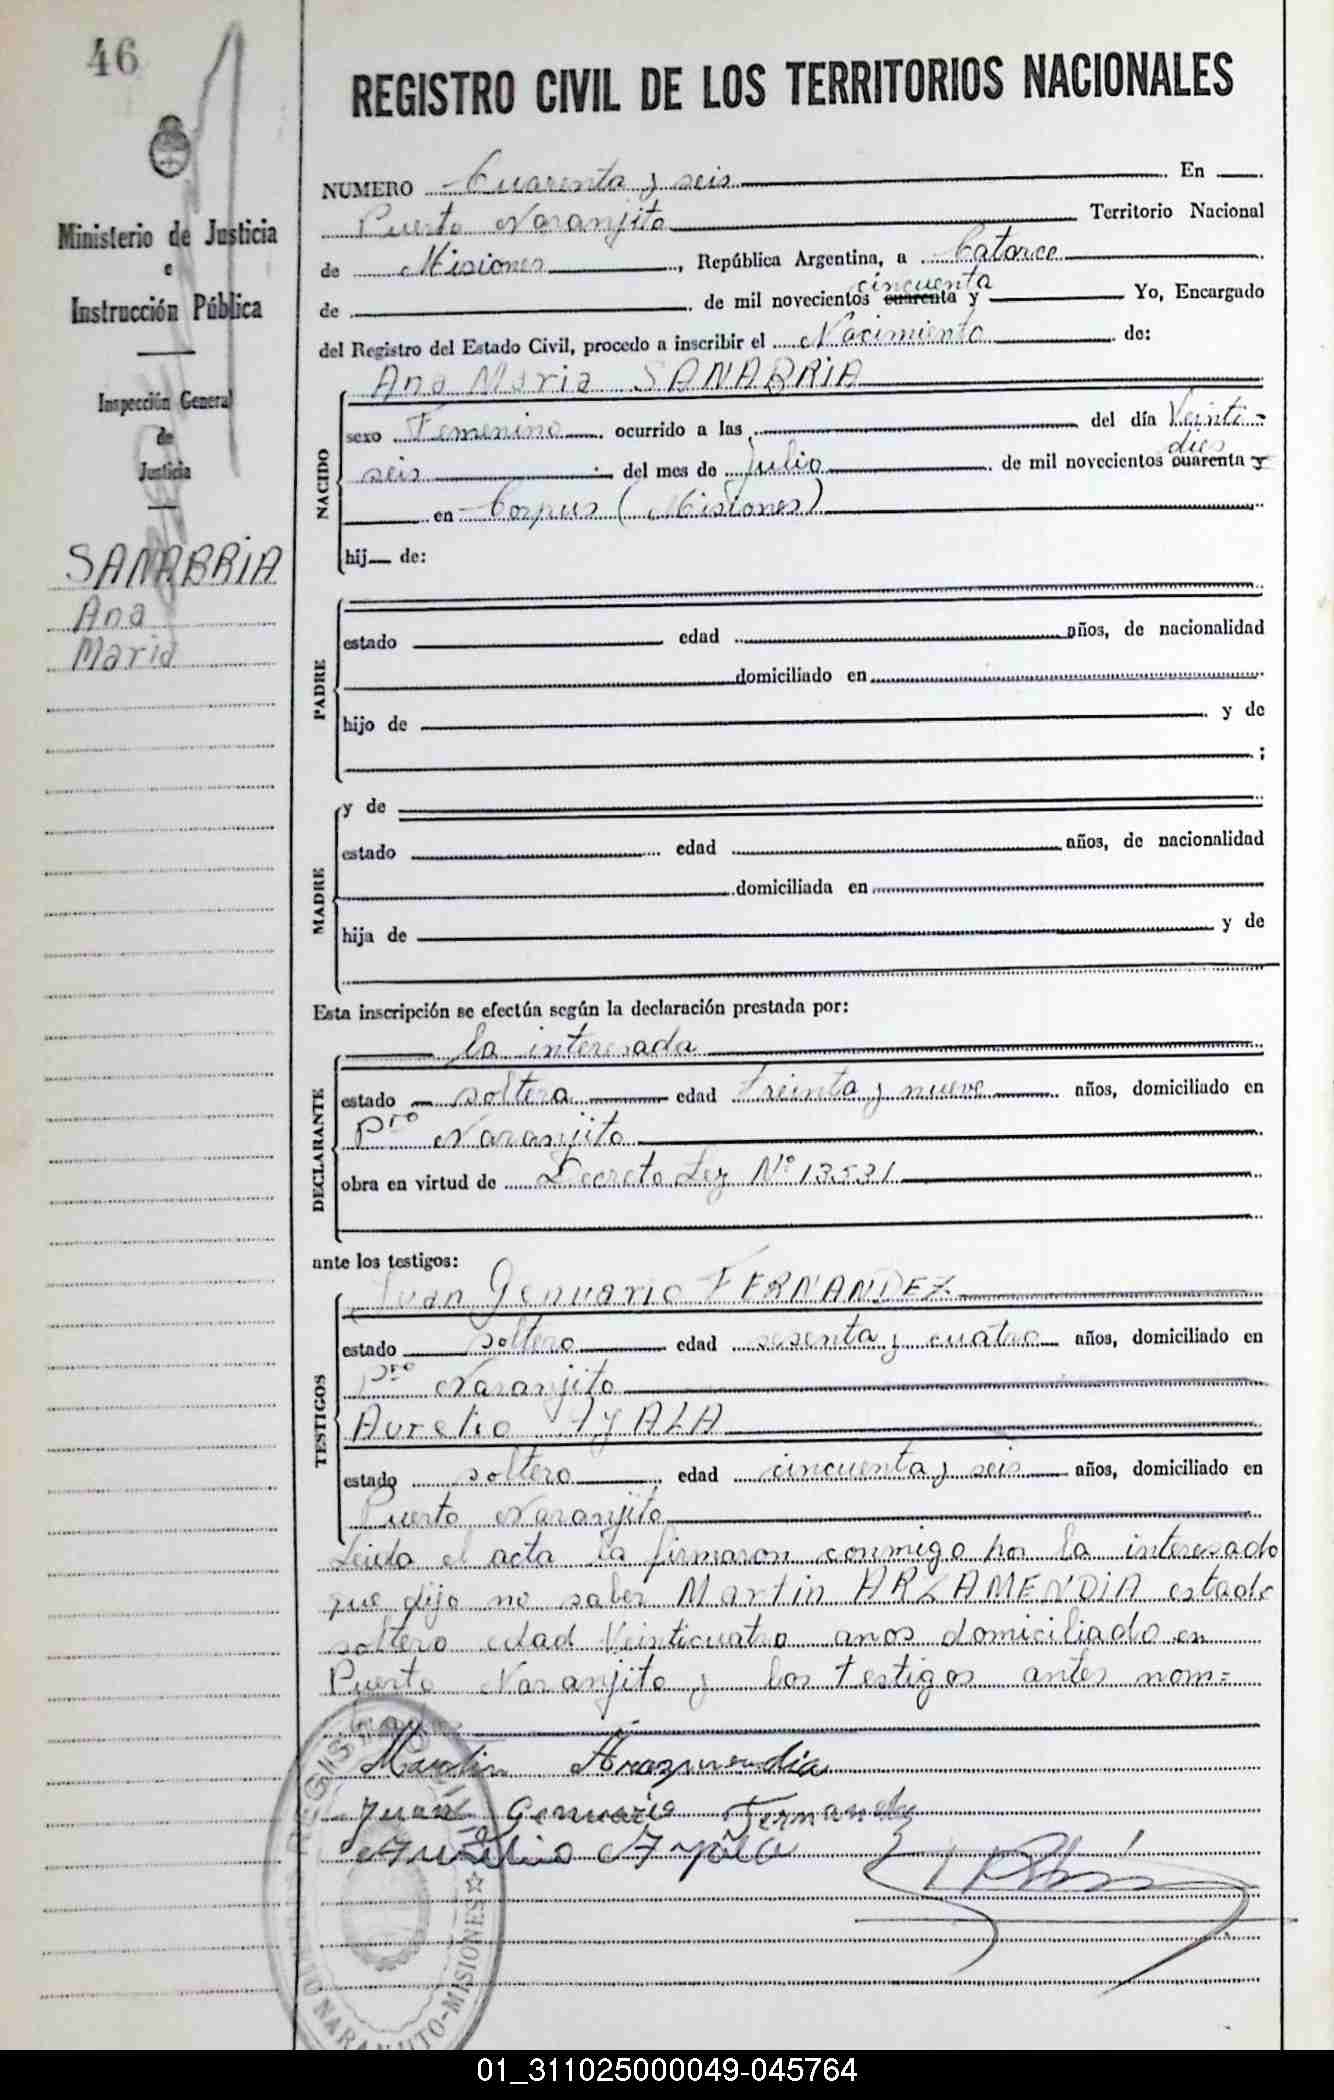 46
REGISTRO CIVIL DE LOS TERRITORIOS NACIONALES
Ministerio de Justicia
e
Instrucción Pública
Inspección General
de
Justicia
SANABRIA
Ana
Maria
NUMERO Cuarenta y seis En
Puerto Naranjito Territorio Nacional
de Misiones, República Argentina, a Catorce
de de mil novecientos cuarenta y cincuenta Yo, Encargado
del Registro del Estado Civil, procedo a inscribir el Nacimiento de:
Ana Maria SANABRIA
NACIDO
sexo Femenino ocurrido a las del día Veinti=
seis del mes de Julio de mil novecientos cuarenta y dies
en Corpus (Misiones)
hij de:
PADRE
estado edad años, de nacionalidad
domiciliado en
hijo de y de
;
MADRE
y de
estado edad años, de nacionalidad
domiciliada en
hija de y de
Esta inscripción se efectúa según la declaración prestada por:
DECLARANTE
la interesada
estado soltera edad Treinta y nueve años, domiciliado en
Pto Naranjito
obra en virtud de Decreto Ley Nº 13531
ante los testigos:
TESTIGOS
Juan Genuario FERNANDEZ
estado soltero edad sesenta y cuatro años, domiciliado en
Pto Naranjito
Aurelio AYALA
estado soltero edad cincuenta y seis años, domiciliado en
Puerto Naranjito
Leida el acta la firmaron conmigo por la interesada
que dijo no saber Martin ARZAMENDIA estado
soltero edad Veinticuatro anos domiciliado en
Puerto Naranjito y los testigos antes nom=
Martin
Juan Genuario Fernandez
Aurelio Ayala
REGISTRO CIVIL
NARANJITO-MISIONES
01_311025000049-045764